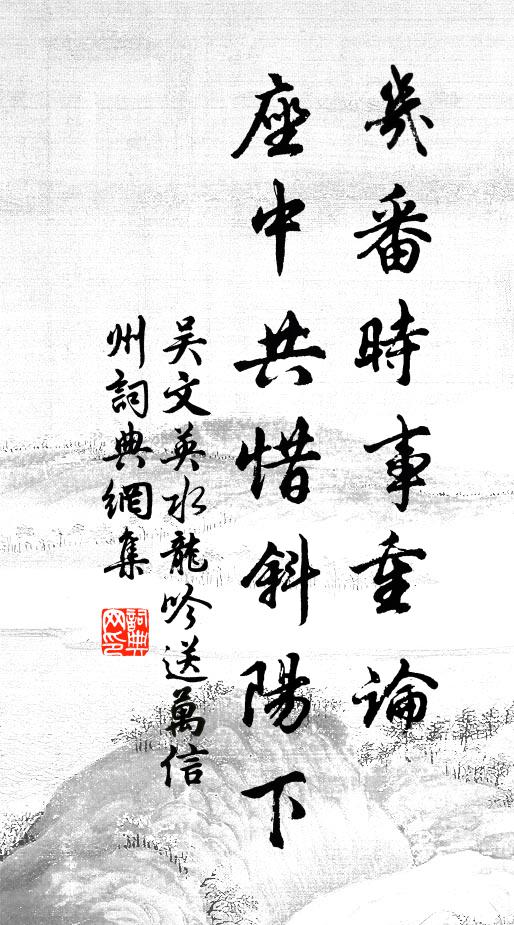 幾番時事重論
座中共惜斜陽下
吴文英水龍吟送萬信
州詞典網集
詞典
网印